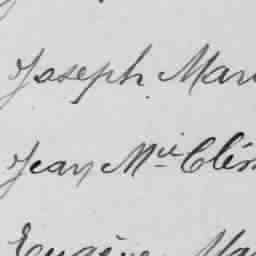 Joseph Mar
Jean Mie Clé
Eugène Ma